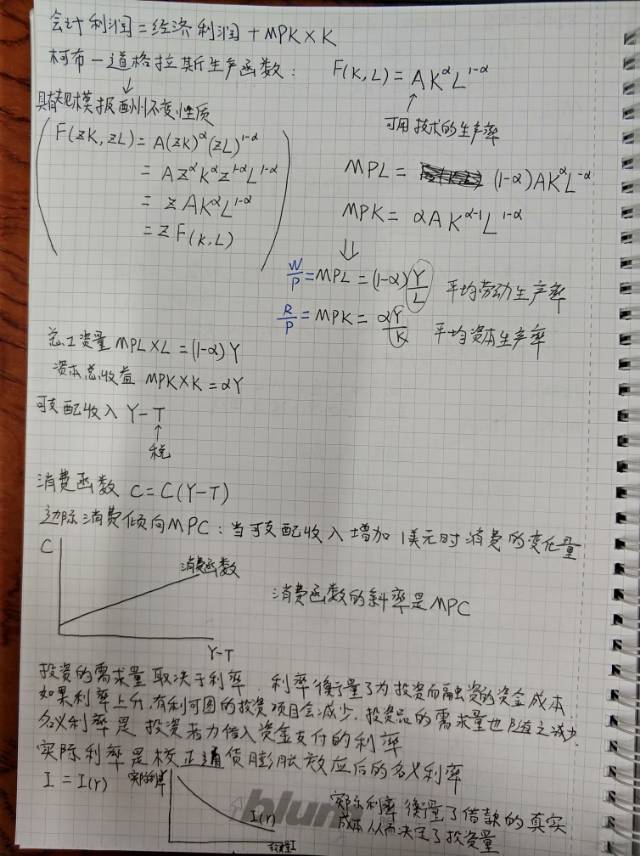 会计利润=经济利润+MPK×K
柯布-道格拉斯生产函数: F(K,L)=AK^αL^{1-α}
↓
具有规模报酬不变性质
↑
可用技术的生产率
F(zK,zL)=A(zK)^α(zL)^{1-α}
=Az^αK^αz^{1-α}L^{1-α}
=zAK^αL^{1-α}
=zF(K,L)
MPL= (1-α)AK^αL^{-α}
MPK=αAK^{α-1}L^{1-α}
⇓
W/P=MPL=(1-α)Y/L 平均劳动生产率
R/P=MPK=αY/K 平均资本生产率
总工资量MPL×L=(1-α)Y
资本总收益 MPK×K=αY
可支配收入 Y-T
↑
税
消费函数 C=C(Y-T)
边际消费倾向MPC:当可支配收入增加1美元时消费的变化量
C
消费函数
消费函数的斜率是MPC
Y-T
投资的需求量取决于利率,利率衡量了为投资而融资的资金成本
如果利率上升,有利可图的投资项目会减少,投资品的需求量也随之减少.
名义利率是投资者为借入资金支付的利率
实际利率是校正通货膨胀效应后的名义利率
I=I(r)
实际利率
I(r)
投资量I
实际利率衡量了借款的真实
成本从而决定了投资量
blum